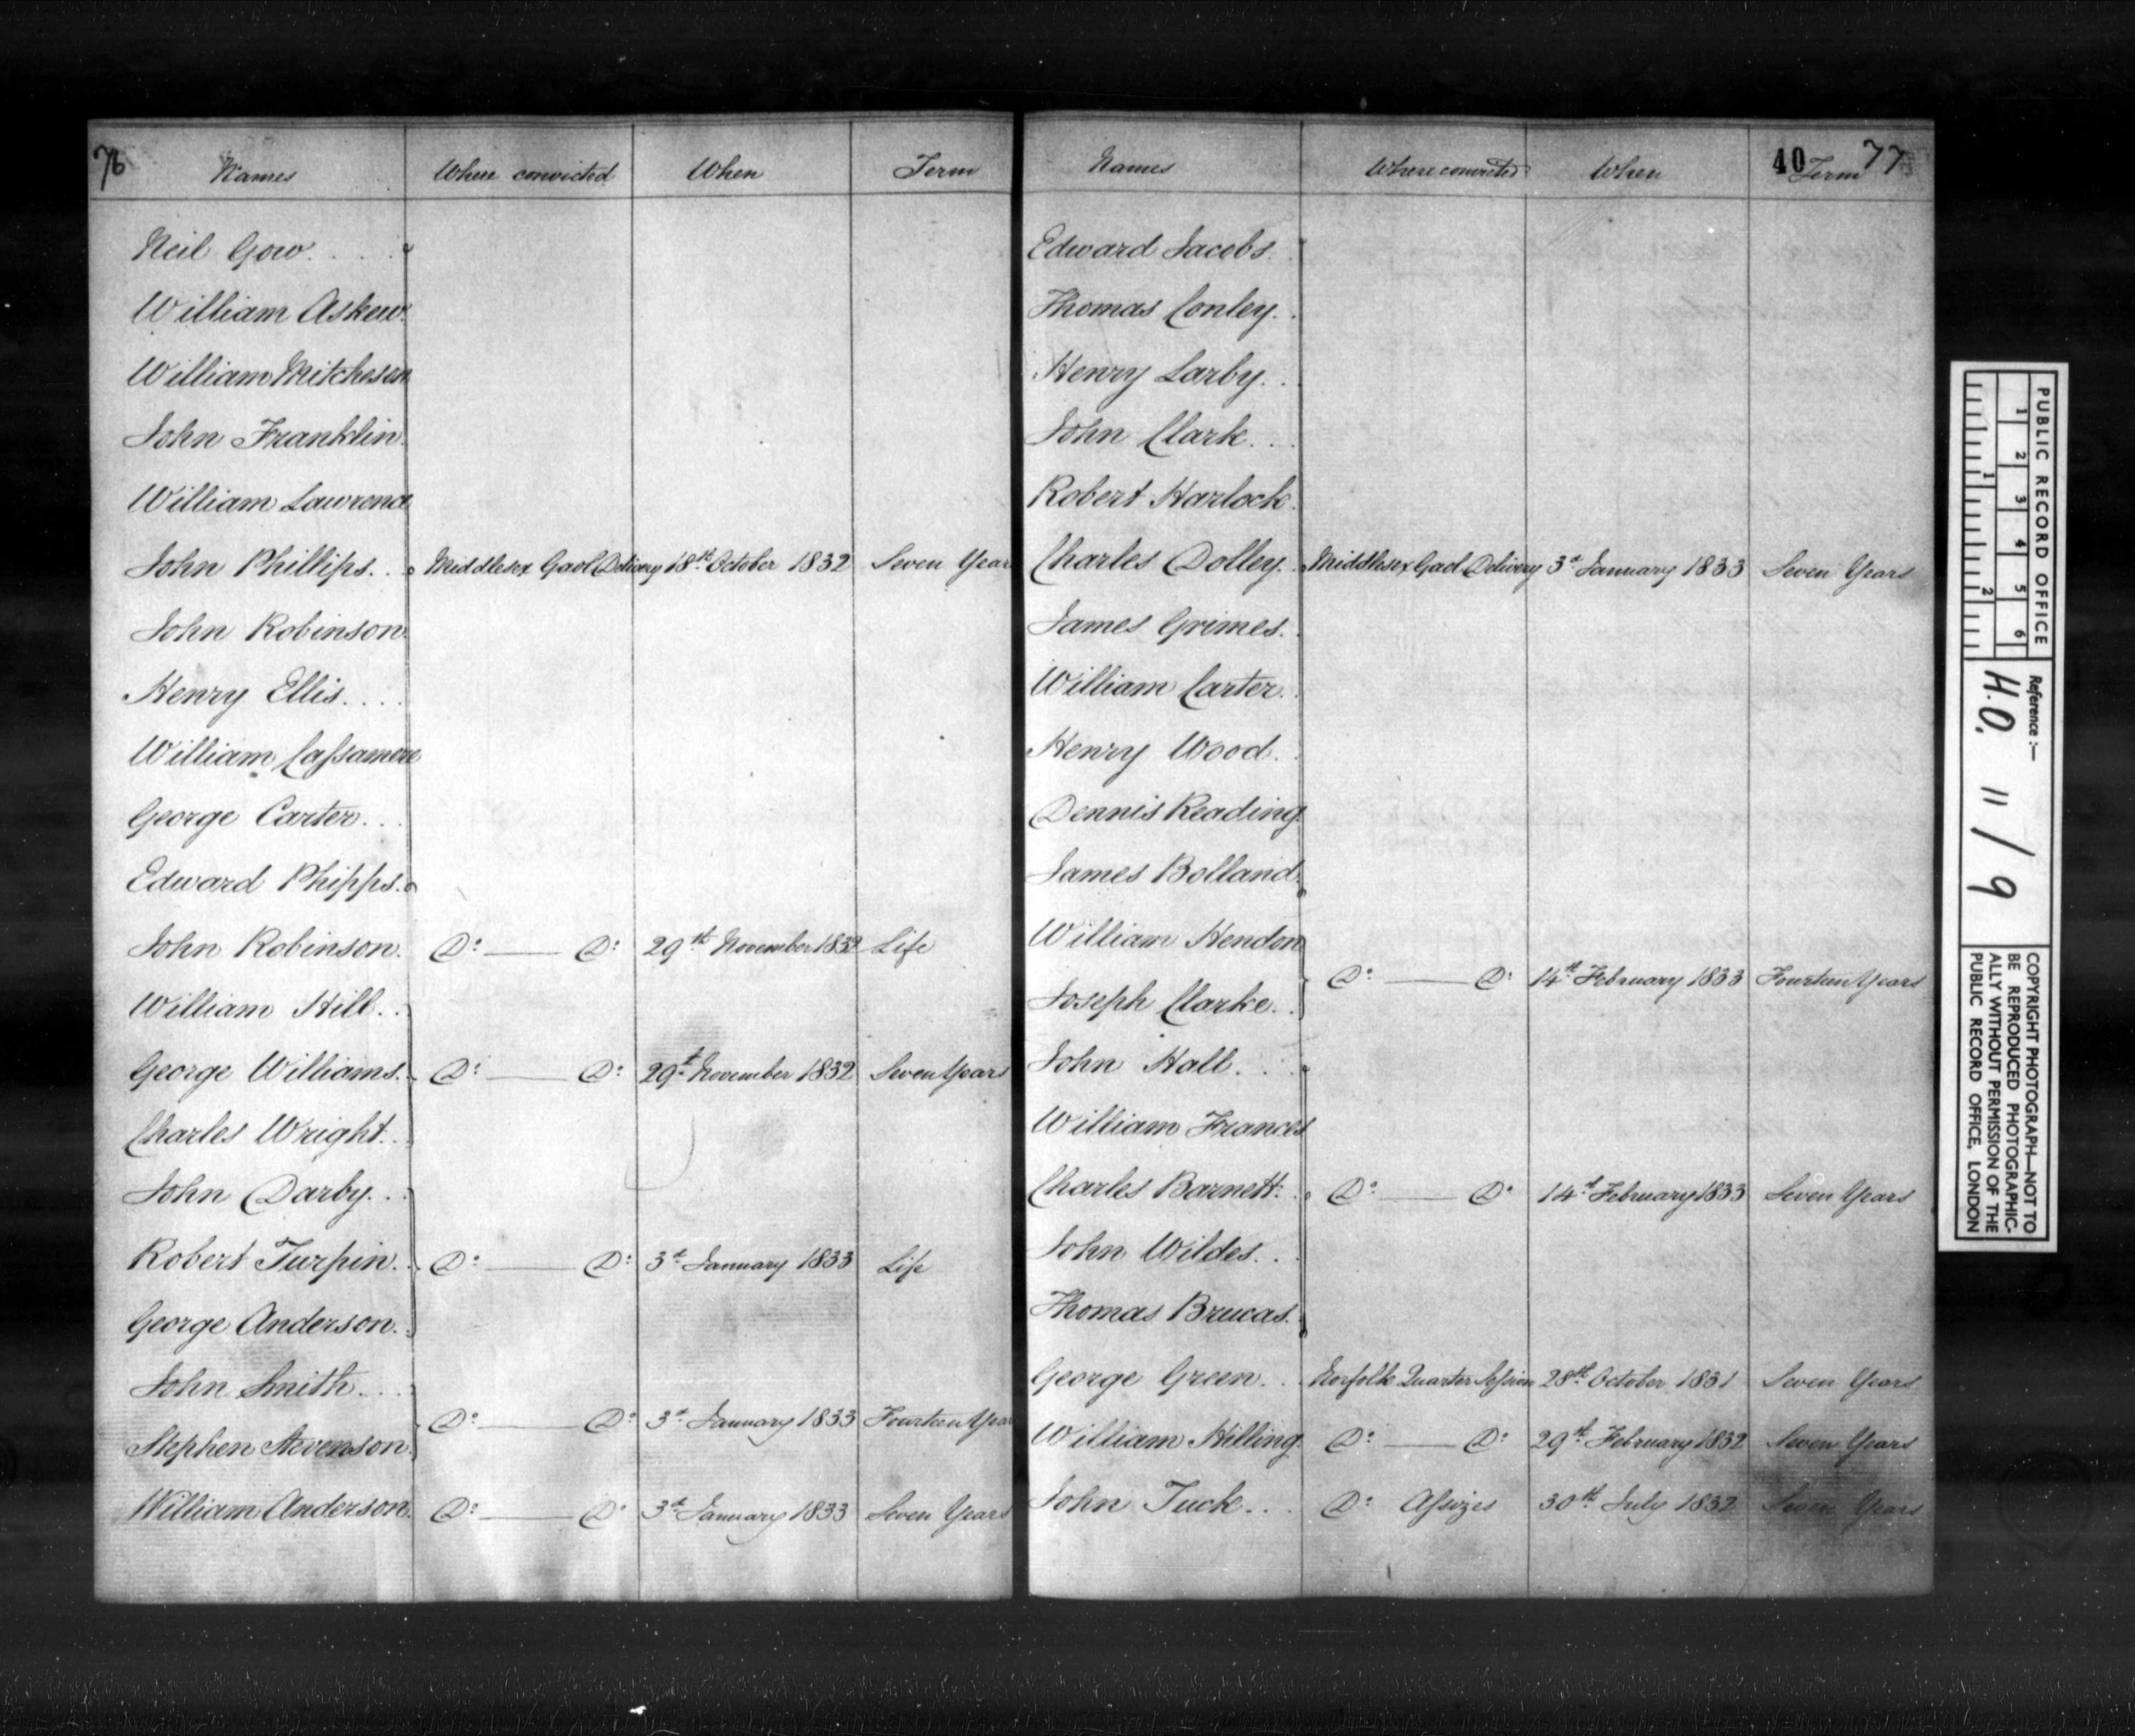 76
Names Where convicted When Term
Neil Gow. . . . .
William Askew.
William Mitcheson
John Franklin.
William Lawrence
John Phillips. . Middlesex Gaol Delivery 18th October 1832 Seven Year
John Robinson.
Henry Ellis. . . .
William Cassamere
George Carter. . .
Edward Phipps.
John Robinson. Do: —— Do: 29th November 1832 Life
William Hill. . .
George Williams. Do: —— Do: 29th November 1832 Seven Years
Charles Wright. .
John Darby. . .
Robert Turpin. . Do: —— Do: 3d January 1833 Life
George Anderson. .
John Smith. . . .
Do: —— Do: 3d January 1833 Fourteen Year
Stephen Stevenson.
William Anderson. Do: —— Do: 3d January 1833 Seven Years
40 77
Names Where convicted When Term
Edward Jacobs.
Thomas Conley. .
Henry Larby. . .
John Clark. . .
Robert Harlock.
Charles Dolley. Middlesex Gaol Delivery 3d January 1833 Seven Years
James Grimes. .
William Carter. .
Henry Wood. .
Dennis Reading.
James Bolland.
William Hendon
Do: —— Do: 14th February 1833 Fourteen Years
Joseph Clarke. .
John Hall. . .
William Frances
Charles Barnett. . Do: —— Do: 14th February 1833 Seven Years
John Wildes. . .
Thomas Brucas.
George Green. . Norfolk Quarter Session 28th October 1831 Seven Years
William Hilling. Do: —— Do: 29th February 1832 Seven Years
John Tuck. . . Do: Assizes 30th July 1832 Seven Years
PUBLIC RECORD OFFICE
1 2 3 4 5 6
1 2
Reference :—
H.O. 11/9
COPYRIGHT PHOTOGRAPH—NOT TO
BE REPRODUCED PHOTOGRAPHIC-
ALLY WITHOUT PERMISSION OF THE
PUBLIC RECORD OFFICE, LONDON